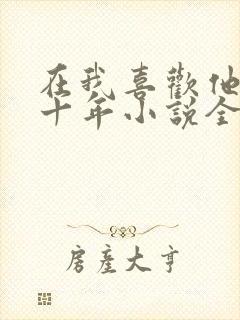 在我喜歡他
十年小說全
房產大亨